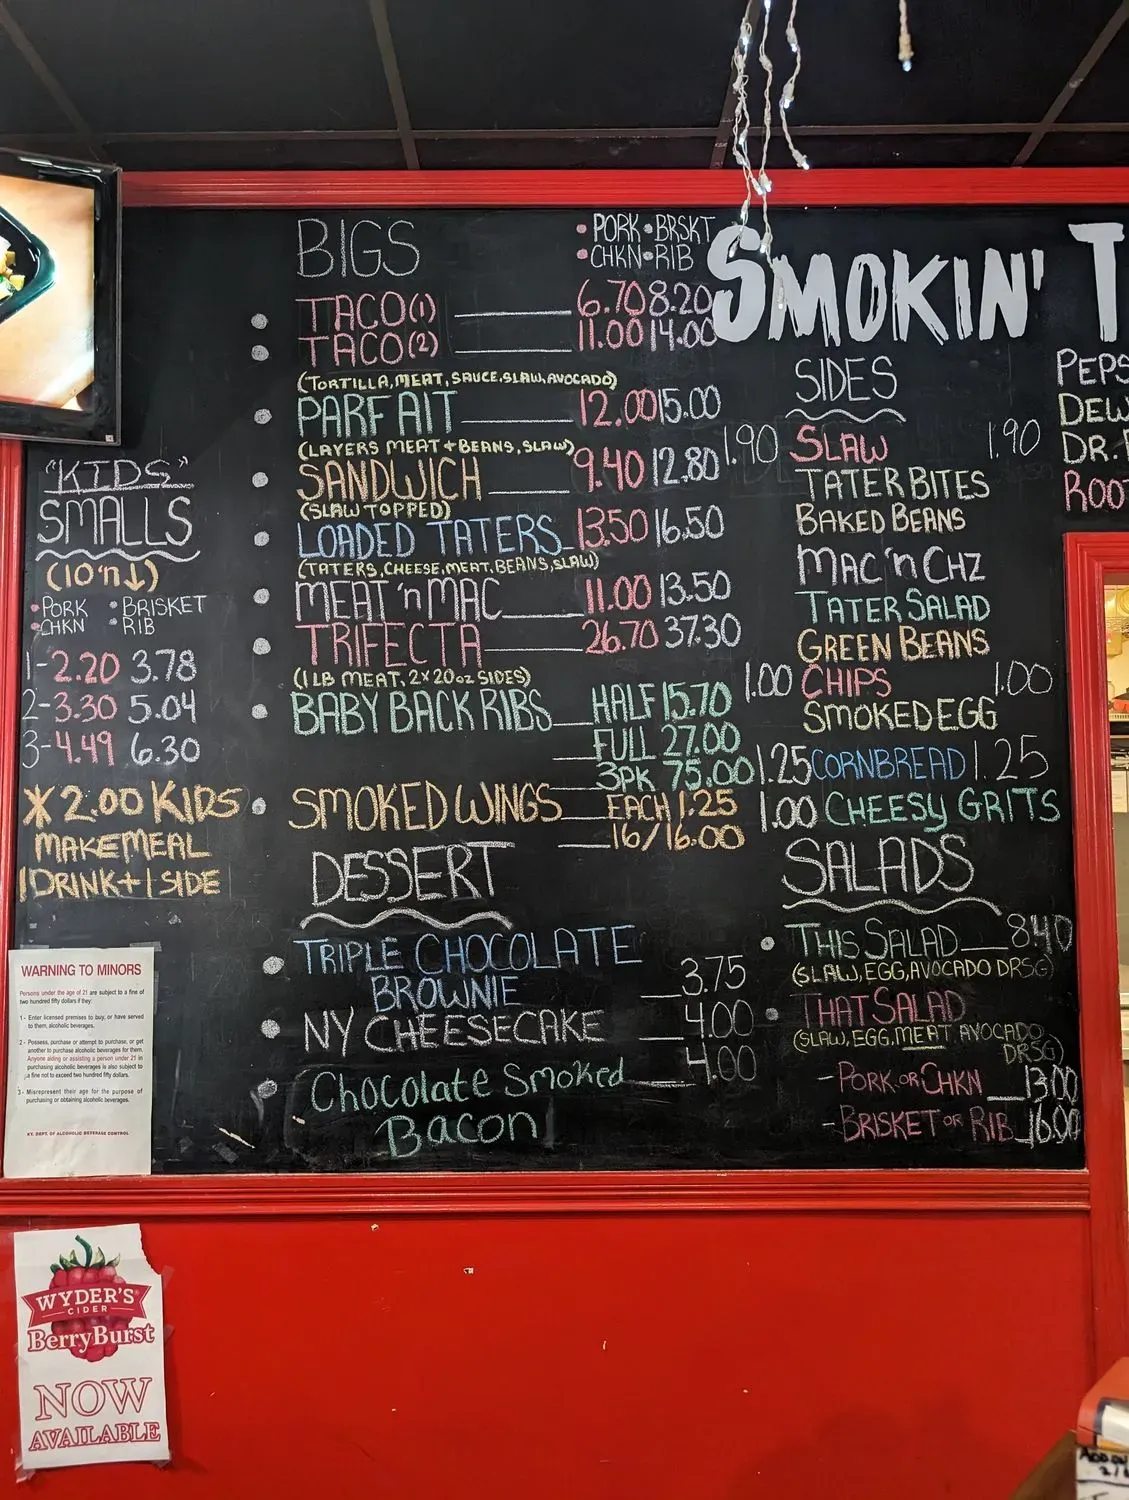 BIGS
• PORK • BRSKT
• CHKN • RIB
TACO(1) 6.70 8.20
TACO(2) 11.00 14.00
(TORTILLA, MEAT, SAUCE, SLAW, AVOCADO)
PARFAIT 12.00 15.00
(LAYERS MEAT + BEANS, SLAW)
SANDWICH 9.40 12.80
(SLAW TOPPED)
LOADED TATERS 13.50 16.50
(TATERS, CHEESE, MEAT, BEANS, SLAW)
MEAT 'n MAC 11.00 13.50
TRIFECTA 26.70 37.30
(1 LB MEAT, 2x20oz SIDES)
BABY BACK RIBS HALF 15.70
FULL 27.00
3PK 75.00
SMOKED WINGS EACH 1.25
16/16.00
"KIDS"
SMALLS
(10 'n ↓)
• PORK • BRISKET
• CHKN • RIB
1-2.20 3.78
2-3.30 5.04
3-4.49 6.30
* 2.00 KIDS
MAKE MEAL
1 DRINK + 1 SIDE
DESSERT
TRIPLE CHOCOLATE
BROWNIE 3.75
NY CHEESECAKE 4.00
Chocolate Smoked 4.00
Bacon
SMOKIN' T
SIDES
1.90 SLAW 1.90
TATER BITES
BAKED BEANS
MAC 'n CHZ
TATER SALAD
GREEN BEANS
1.00 CHIPS 1.00
SMOKED EGG
1.25 CORNBREAD 1.25
1.00 CHEESY GRITS
SALADS
THIS SALAD 8.40
(SLAW, EGG, AVOCADO DRSG)
THAT SALAD
(SLAW, EGG, MEAT, AVOCADO
DRSG)
- PORK OR CHKN 13.00
- BRISKET OR RIB 16.00
PEPS
DEW
DR. P
ROOT
WARNING TO MINORS
Persons under the age of 21 are subject to a fine of
two hundred fifty dollars if they:
1 - Enter licensed premises to buy, or have served
to them, alcoholic beverages.
2 - Possess, purchase or attempt to purchase, or get
another to purchase alcoholic beverages for them.
Anyone aiding or assisting a person under 21 in
purchasing alcoholic beverages is also subject to
a fine not to exceed two hundred fifty dollars.
3 - Misrepresent their age for the purpose of
purchasing or obtaining alcoholic beverages.
KY. DEPT. OF ALCOHOLIC BEVERAGE CONTROL
WYDER'S
CIDER
BerryBurst
NOW
AVAILABLE